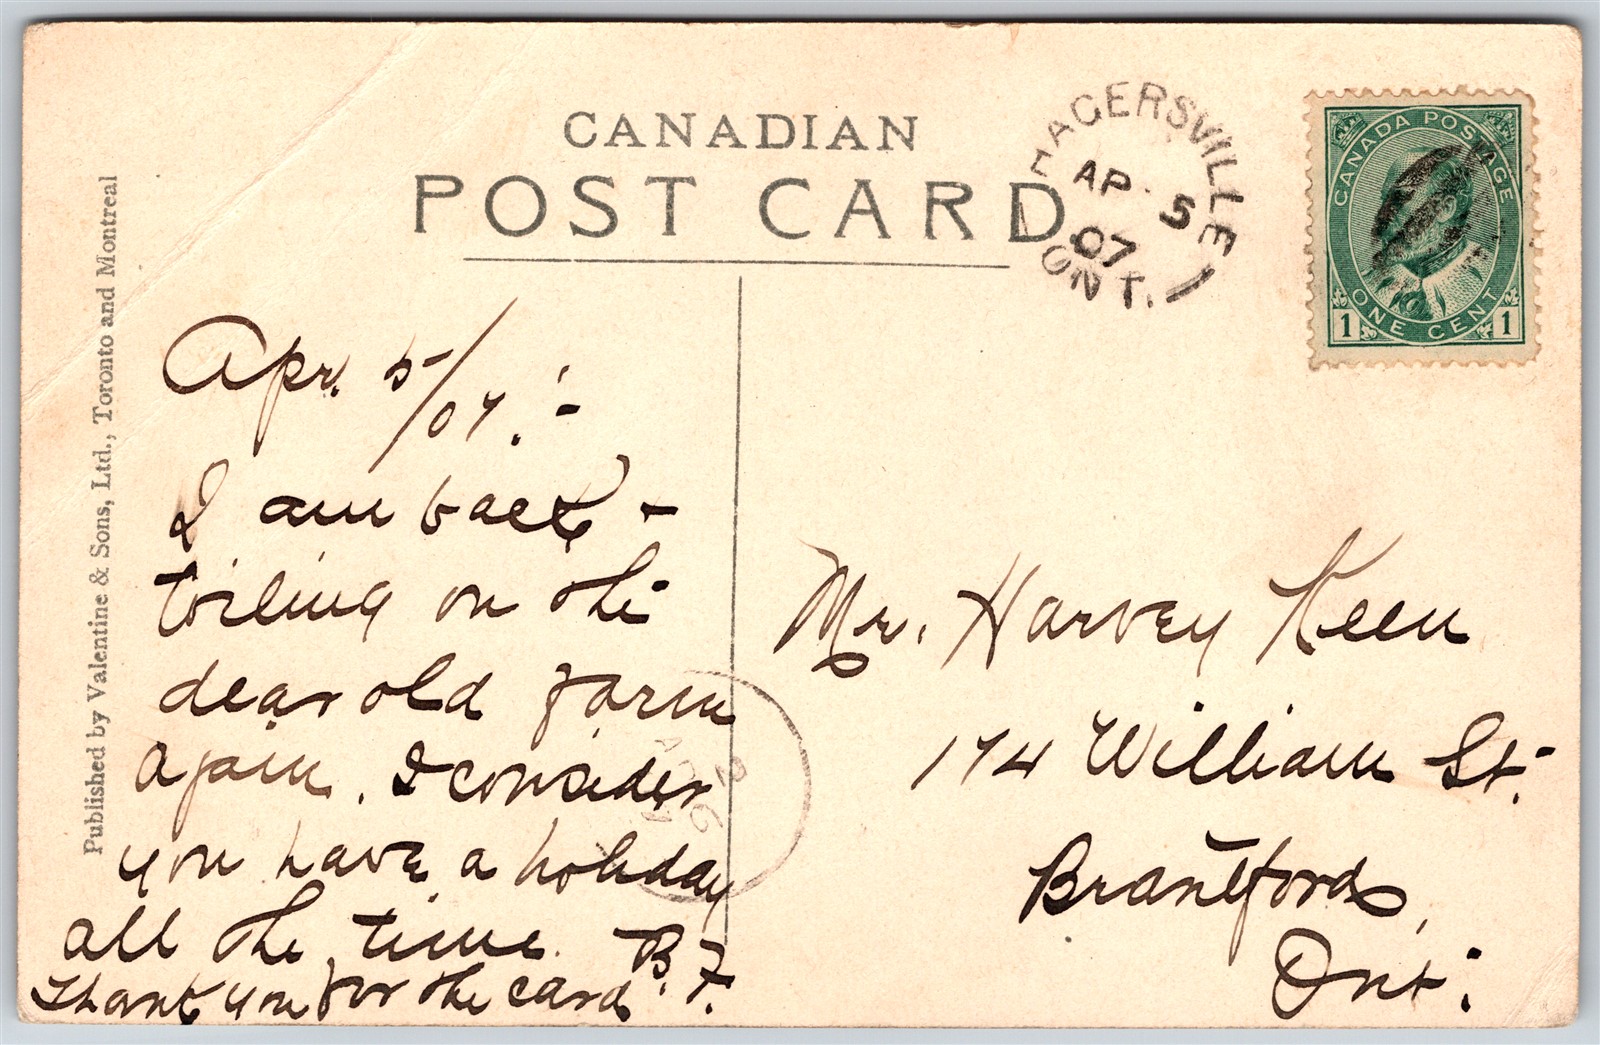 CANADIAN
POST CARD
HAGERSVILLE
AP 5
07
ONT.
CANADA POSTAGE
ONE CENT
1 1
Published by Valentine & Sons, Ltd., Toronto and Montreal
Apr. 5/07. :-
I am back +
toiling on the
dear old farm
again. I consider
you have a holiday
all the time. B. F.
Thank you for the card.
Mr. Harvey Keen
174 William St.
Brantford,
Ont.